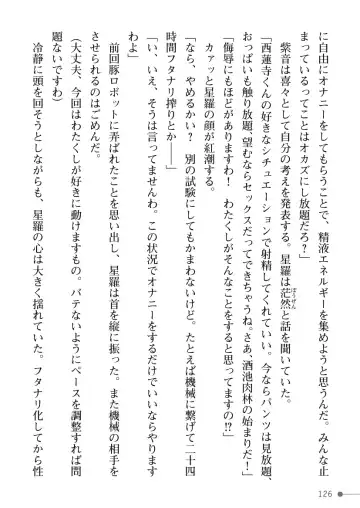 に自由にオナニーをしてもらうことで、精液エネルギーを集めようと思うんだ。みんな止
まっているってことはオカズにし放題だろ？」
　紫音は喜々として自分の考えを発表する。星羅は茫然と話を聞いていた。
「西蓮寺くんの好きなシチュエーションで射精してくれていい。今ならパンツは見放題、
おっぱいも触り放題、望むならセックスだってできちゃうね。さあ、酒池肉林の始まりだ！」
「侮辱にもほどがありますわ！　わたくしがそんなことをすると思ってますの!?」
　カァッと星羅の顔が紅潮する。
「なら、やめるかい？　別の試験にしてもかまわないけど。たとえば機械に繋げて二十四
時間フタナリ搾りとか――」
「い、いえ、そうは言ってませんわ。この状況でオナニーをするだけでいいならやります
わよ」
　前回豚ロボットに弄ばれたことを思い出し、星羅は首を縦に振った。また機械の相手を
させられるのはごめんだ。
（大丈夫、今回はわたくしが好きに動けますもの。バテないようにペースを調整すれば問
題ないですわ）
　冷静に頭を回そうとしながらも、星羅の心は大きく揺れていた。フタナリ化してから性
126